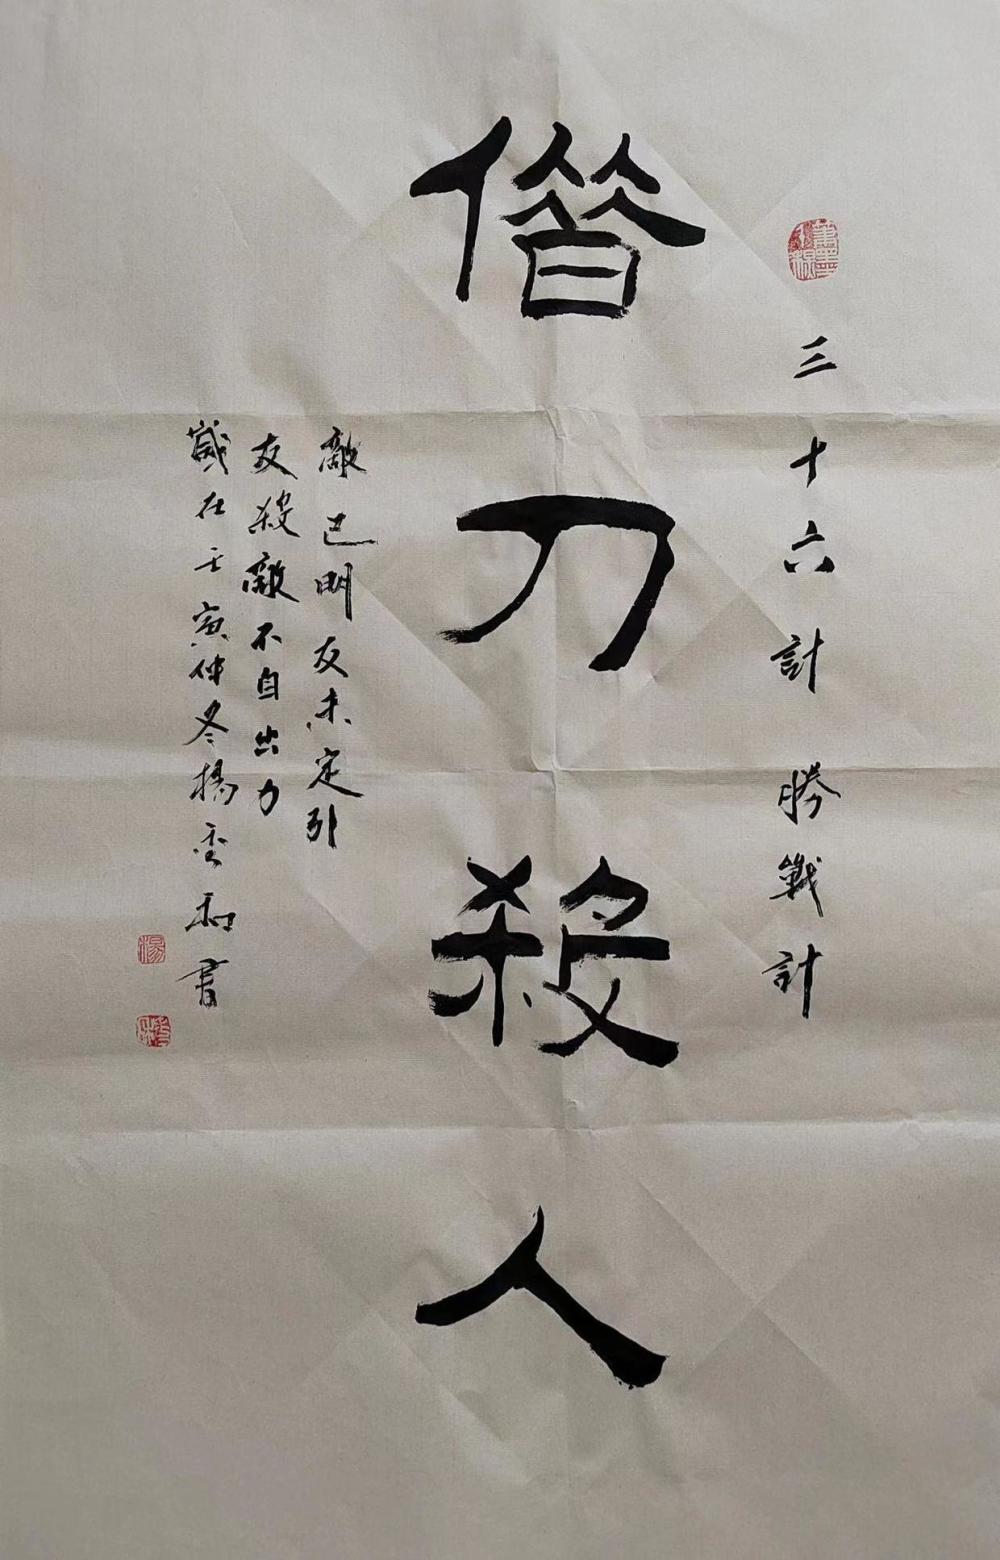 三十六計 勝戰計
借刀殺人
敵已明友未定引
友殺敵不自出力
歲在壬寅仲冬楊雲和書